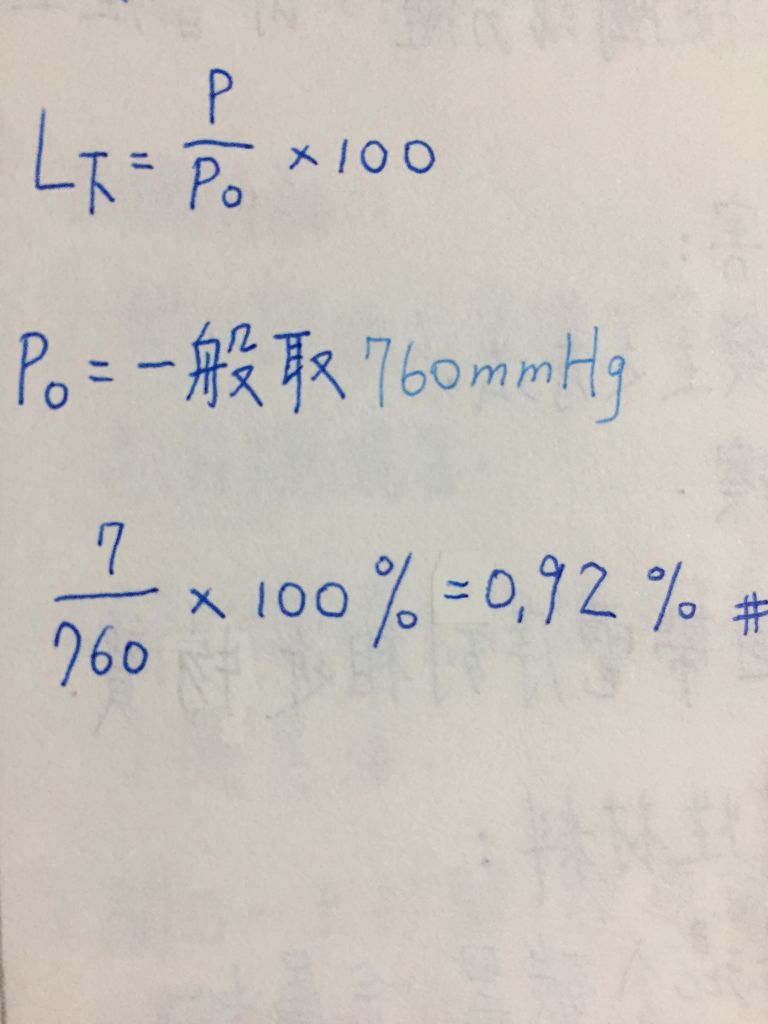 L下 = P/P₀ × 100
P₀ = 一般取 760mmHg
7/760 × 100 % = 0.92 % #